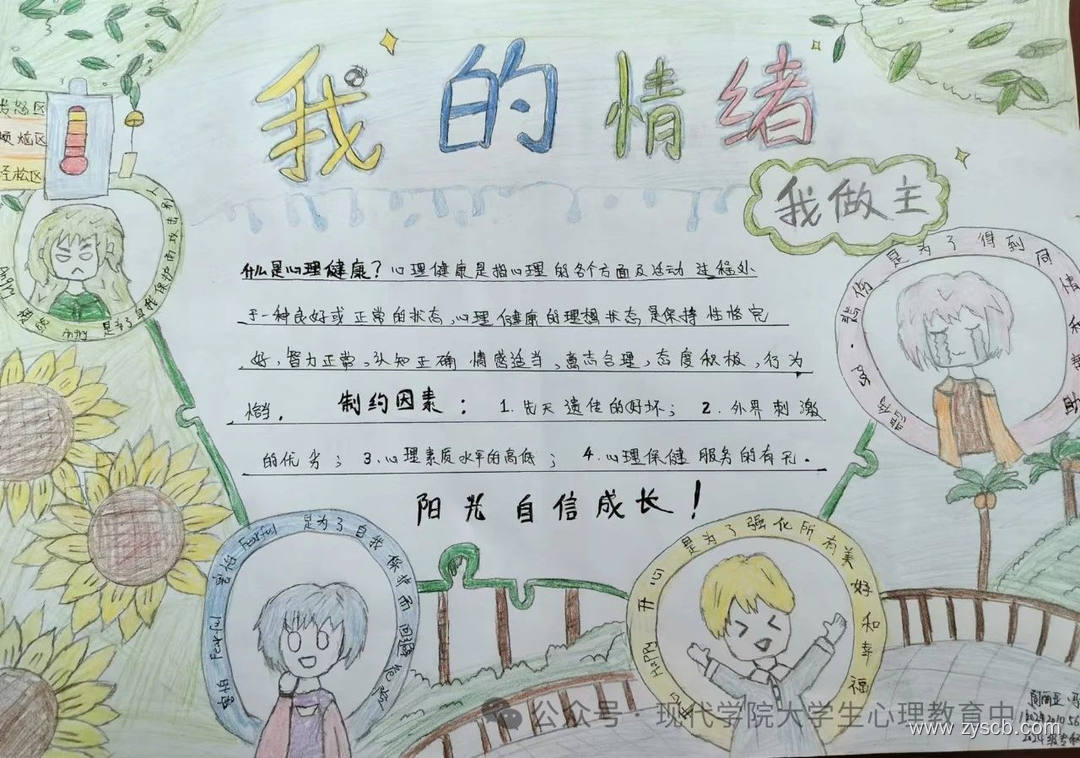 我的情绪
我做主
发怒区
烦恼区
轻松区
什么是心理健康？心理健康是指心理的各个方面及活动过程处
于一种良好或正常的状态，心理健康的理想状态是保持性格完
好，智力正常，认知正确，情感适当，意志合理，态度积极，行为
恰当。 制约因素： 1.先天遗传的好坏； 2.外界刺激
的优劣； 3.心理素质水平的高低； 4.心理保健服务的有无。
阳光自信成长！
Angry
是为了自我保护而攻击别人
悲伤
是为了得到同情和帮助
害怕 Fearful 害怕 Fearful 是为了自我
开心 Happy 是为了强化所有美好和幸福
公众号·现代学院大学生心理教育中
www.zyscb.com